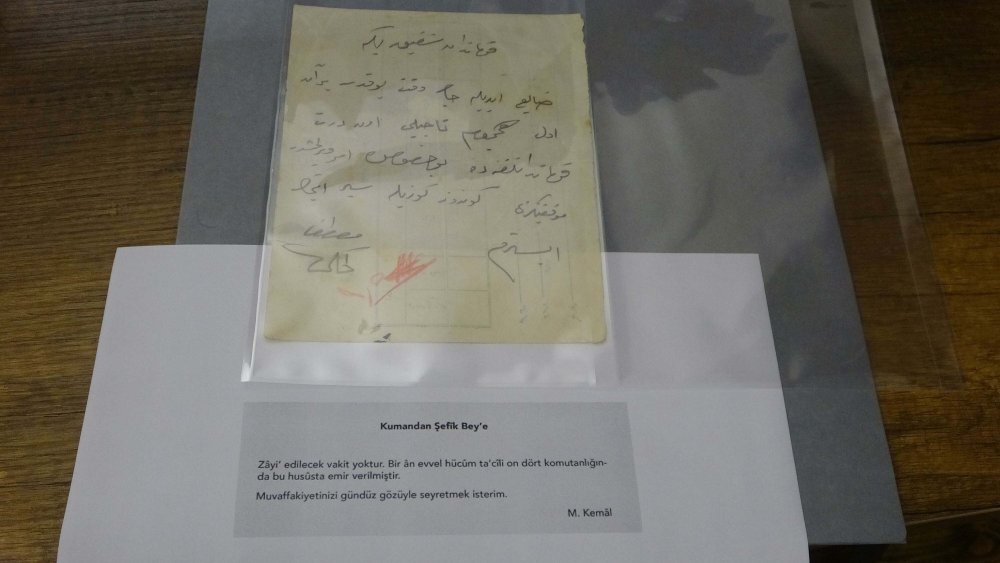 قوماندان شفیق بكه
ضایع ایدیله جك وقت یوقدر بر آن
اول هجوم تعجیلی اون درت
قوماندانلغنده بو خصوصده امر ویرلمشدر
موفقیتكزی كوندوز كوزیله سیر ایتمك
ایسترم
مصطفى
كمال
Kumandan Şefîk Bey'e
Zâyi' edilecek vakit yoktur. Bir ân evvel hücûm ta'cîli on dört komutanlığın-
da bu husûsta emir verilmiştir.
Muvaffakiyetinizi gündüz gözüyle seyretmek isterim.
M. Kemâl